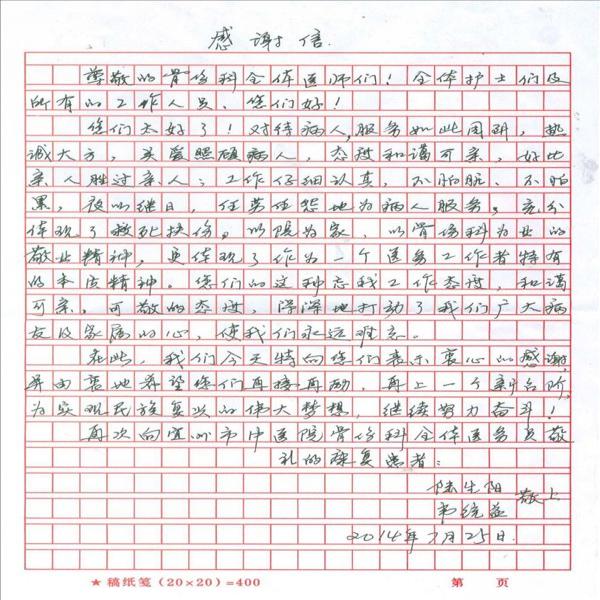 感谢信
尊敬的骨伤科全体医师们！全体护士们及
所有的工作人员、您们好！
您们太好了！对待病人，服务如此周到，热
诚大方，关爱照顾病人，态度和谐可亲，好比
亲人胜过亲人；工作仔细认真，不怕脏、不怕
累，夜以继日，任劳任怨地为病人服务，充分
体现了救死扶伤，以院为家，以骨伤科为业的
敬业精神，更体现了作为一个医务工作者特有
的本质精神。您们的这种忘我工作态度，和谐
可亲，可敬的态度，深深地打动了我们广大病
友及家属的心，使我们永远难忘。
在此，我们今天特向您们表示衷心的感谢，
并由衷地希望您们再接再励，再上一个新台阶，
为实现民族复兴的伟大梦想，继续努力奋斗！
再次向宜州市中医院骨伤科全体医务员敬
礼的康复患者：
陆生阳
韦统益 敬上
2014年7月25日.
★稿纸笺（20×20）=400 第 页